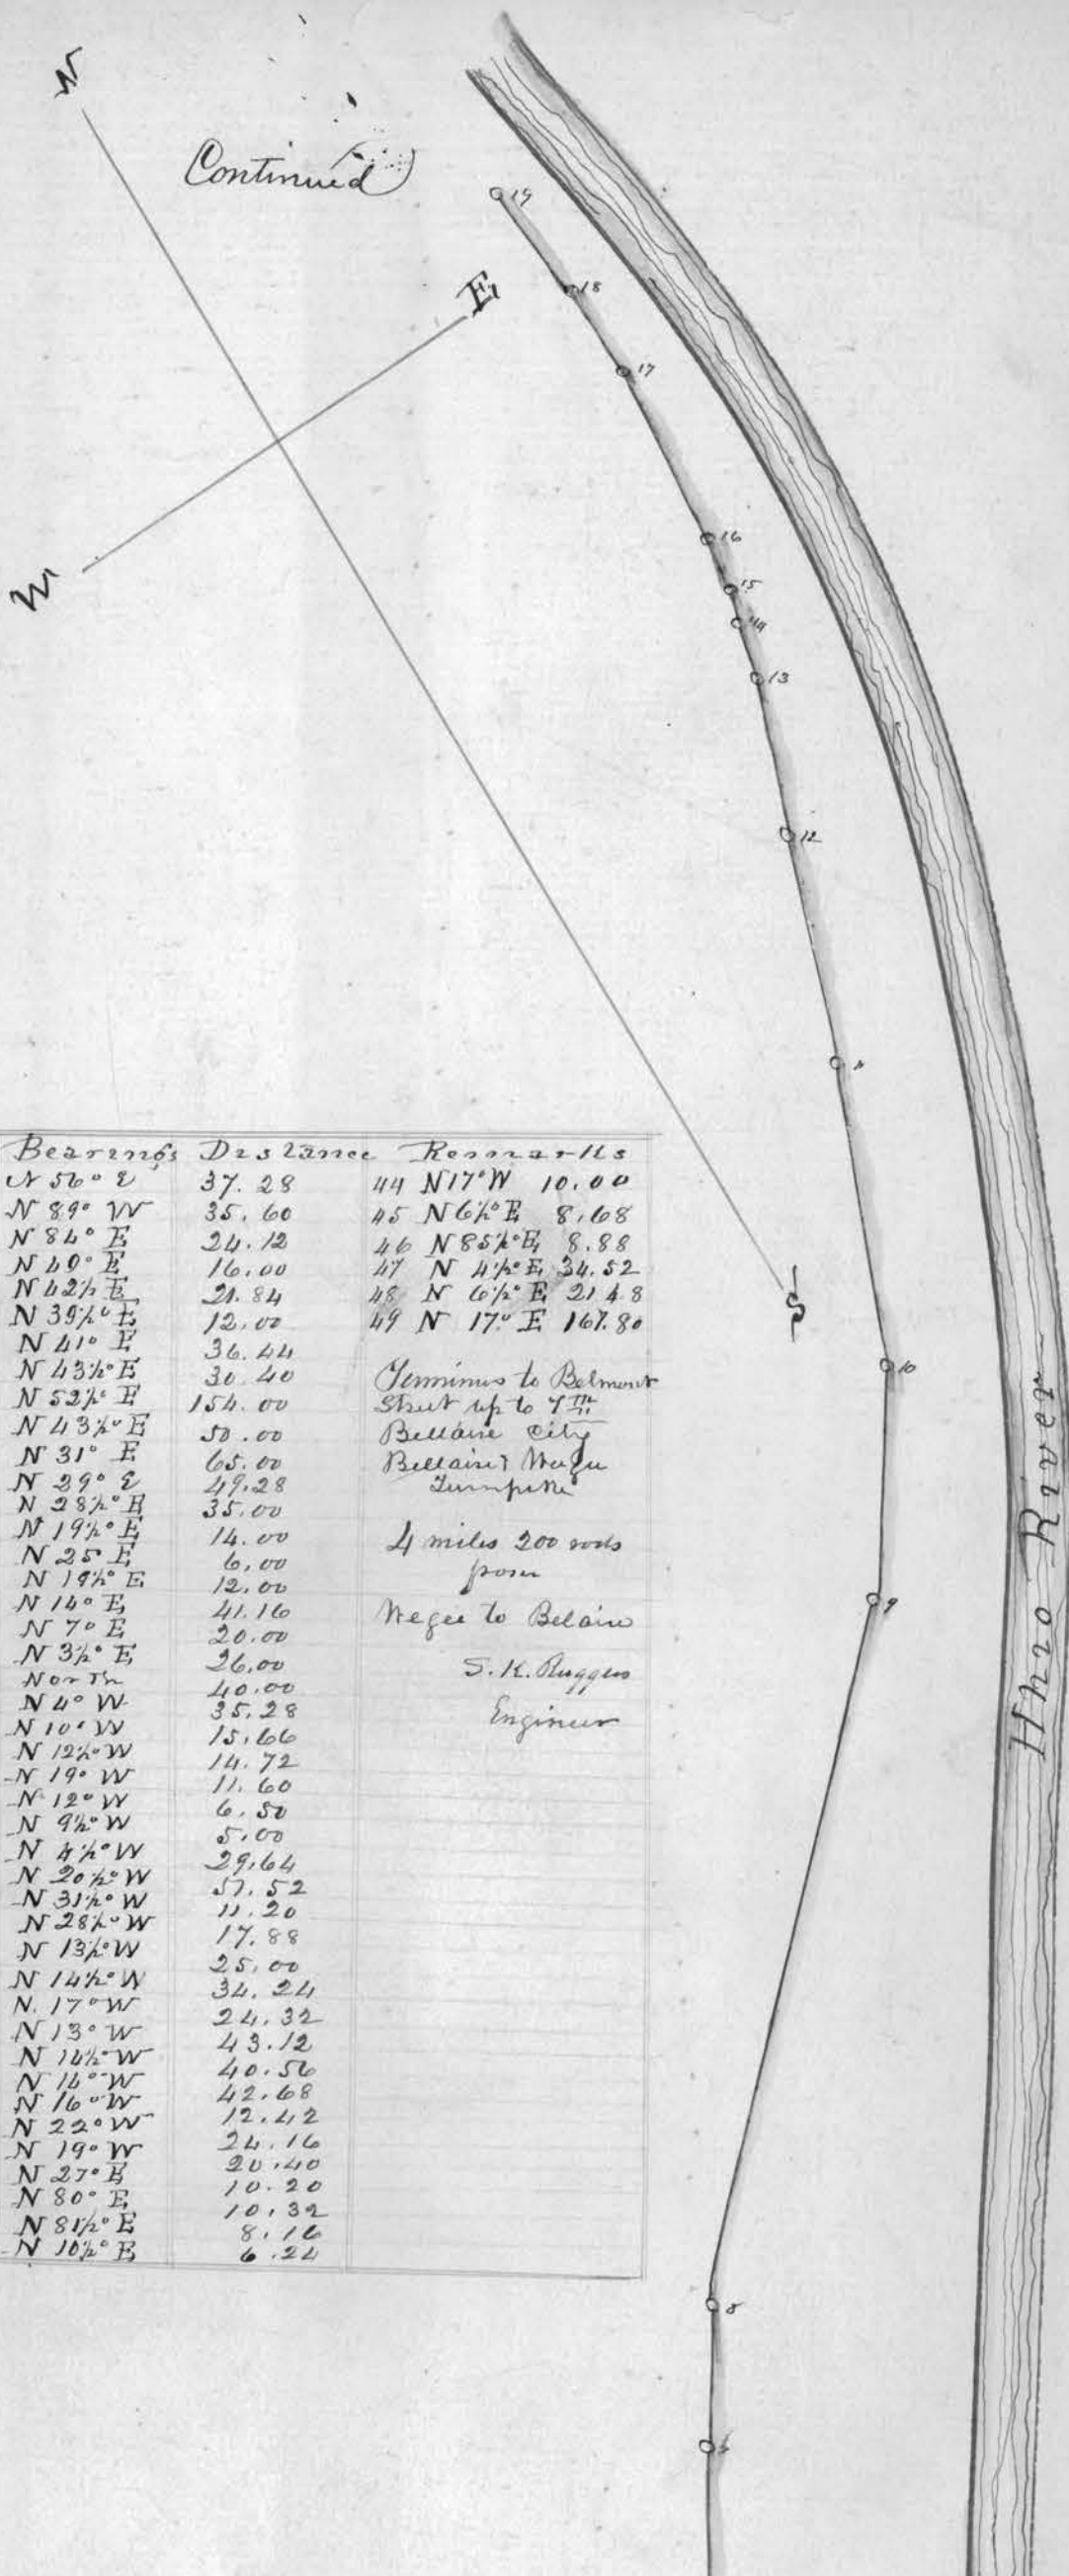 N
Continued
E
W
S
19
18
17
16
15
14
13
12
10
9
8
Ohio River
Bearings Distance Remarks
N 56° E 37.28 44 N 17° W 10.00
N 89° W 35.60 45 N 6½° E 8.68
N 84° E 24.12 46 N 85½° E 8.88
N 40° E 16.00 47 N 4½° E 34.52
N 42½ E 21.84 48 N 6½° E 21.48
N 39½° E 12.00 49 N 17° E 167.80
N 41° E 36.44
N 43½° E 30.40 Terminus to Belmont
N 52½° E 154.00 Street up to 7th
N 43½° E 50.00 Bellaire City
N 31° E 65.00 Bellaire & Wegee
N 29° E 49.28 Turnpike
N 28½° E 35.00
N 19½° E 14.00 4 miles 200 rods
N 25 E 6.00 from
N 19½° E 12.00
N 14° E 41.16 Wegee to Belaire
N 7° E 20.00
N 3½° E 26.00 S. K. Ruggles
North 40.00
N 4° W 35.28 Engineer
N 10° W 15.66
N 12½° W 14.72
N 19° W 11.60
N 12° W 6.50
N 9½° W 5.00
N 4½° W 29.64
N 20½° W 57.52
N 31½° W 11.20
N 28½° W 17.88
N 13½° W 25.00
N 14½° W 34.24
N. 17° W 24.32
N 13° W 43.12
N 14½° W 40.56
N 14° W 42.68
N 16° W 12.42
N 22° W 24.16
N 19° W 20.40
N 27° E 10.20
N 80° E 10.32
N 81½° E 8.16
N 10½° E 6.24